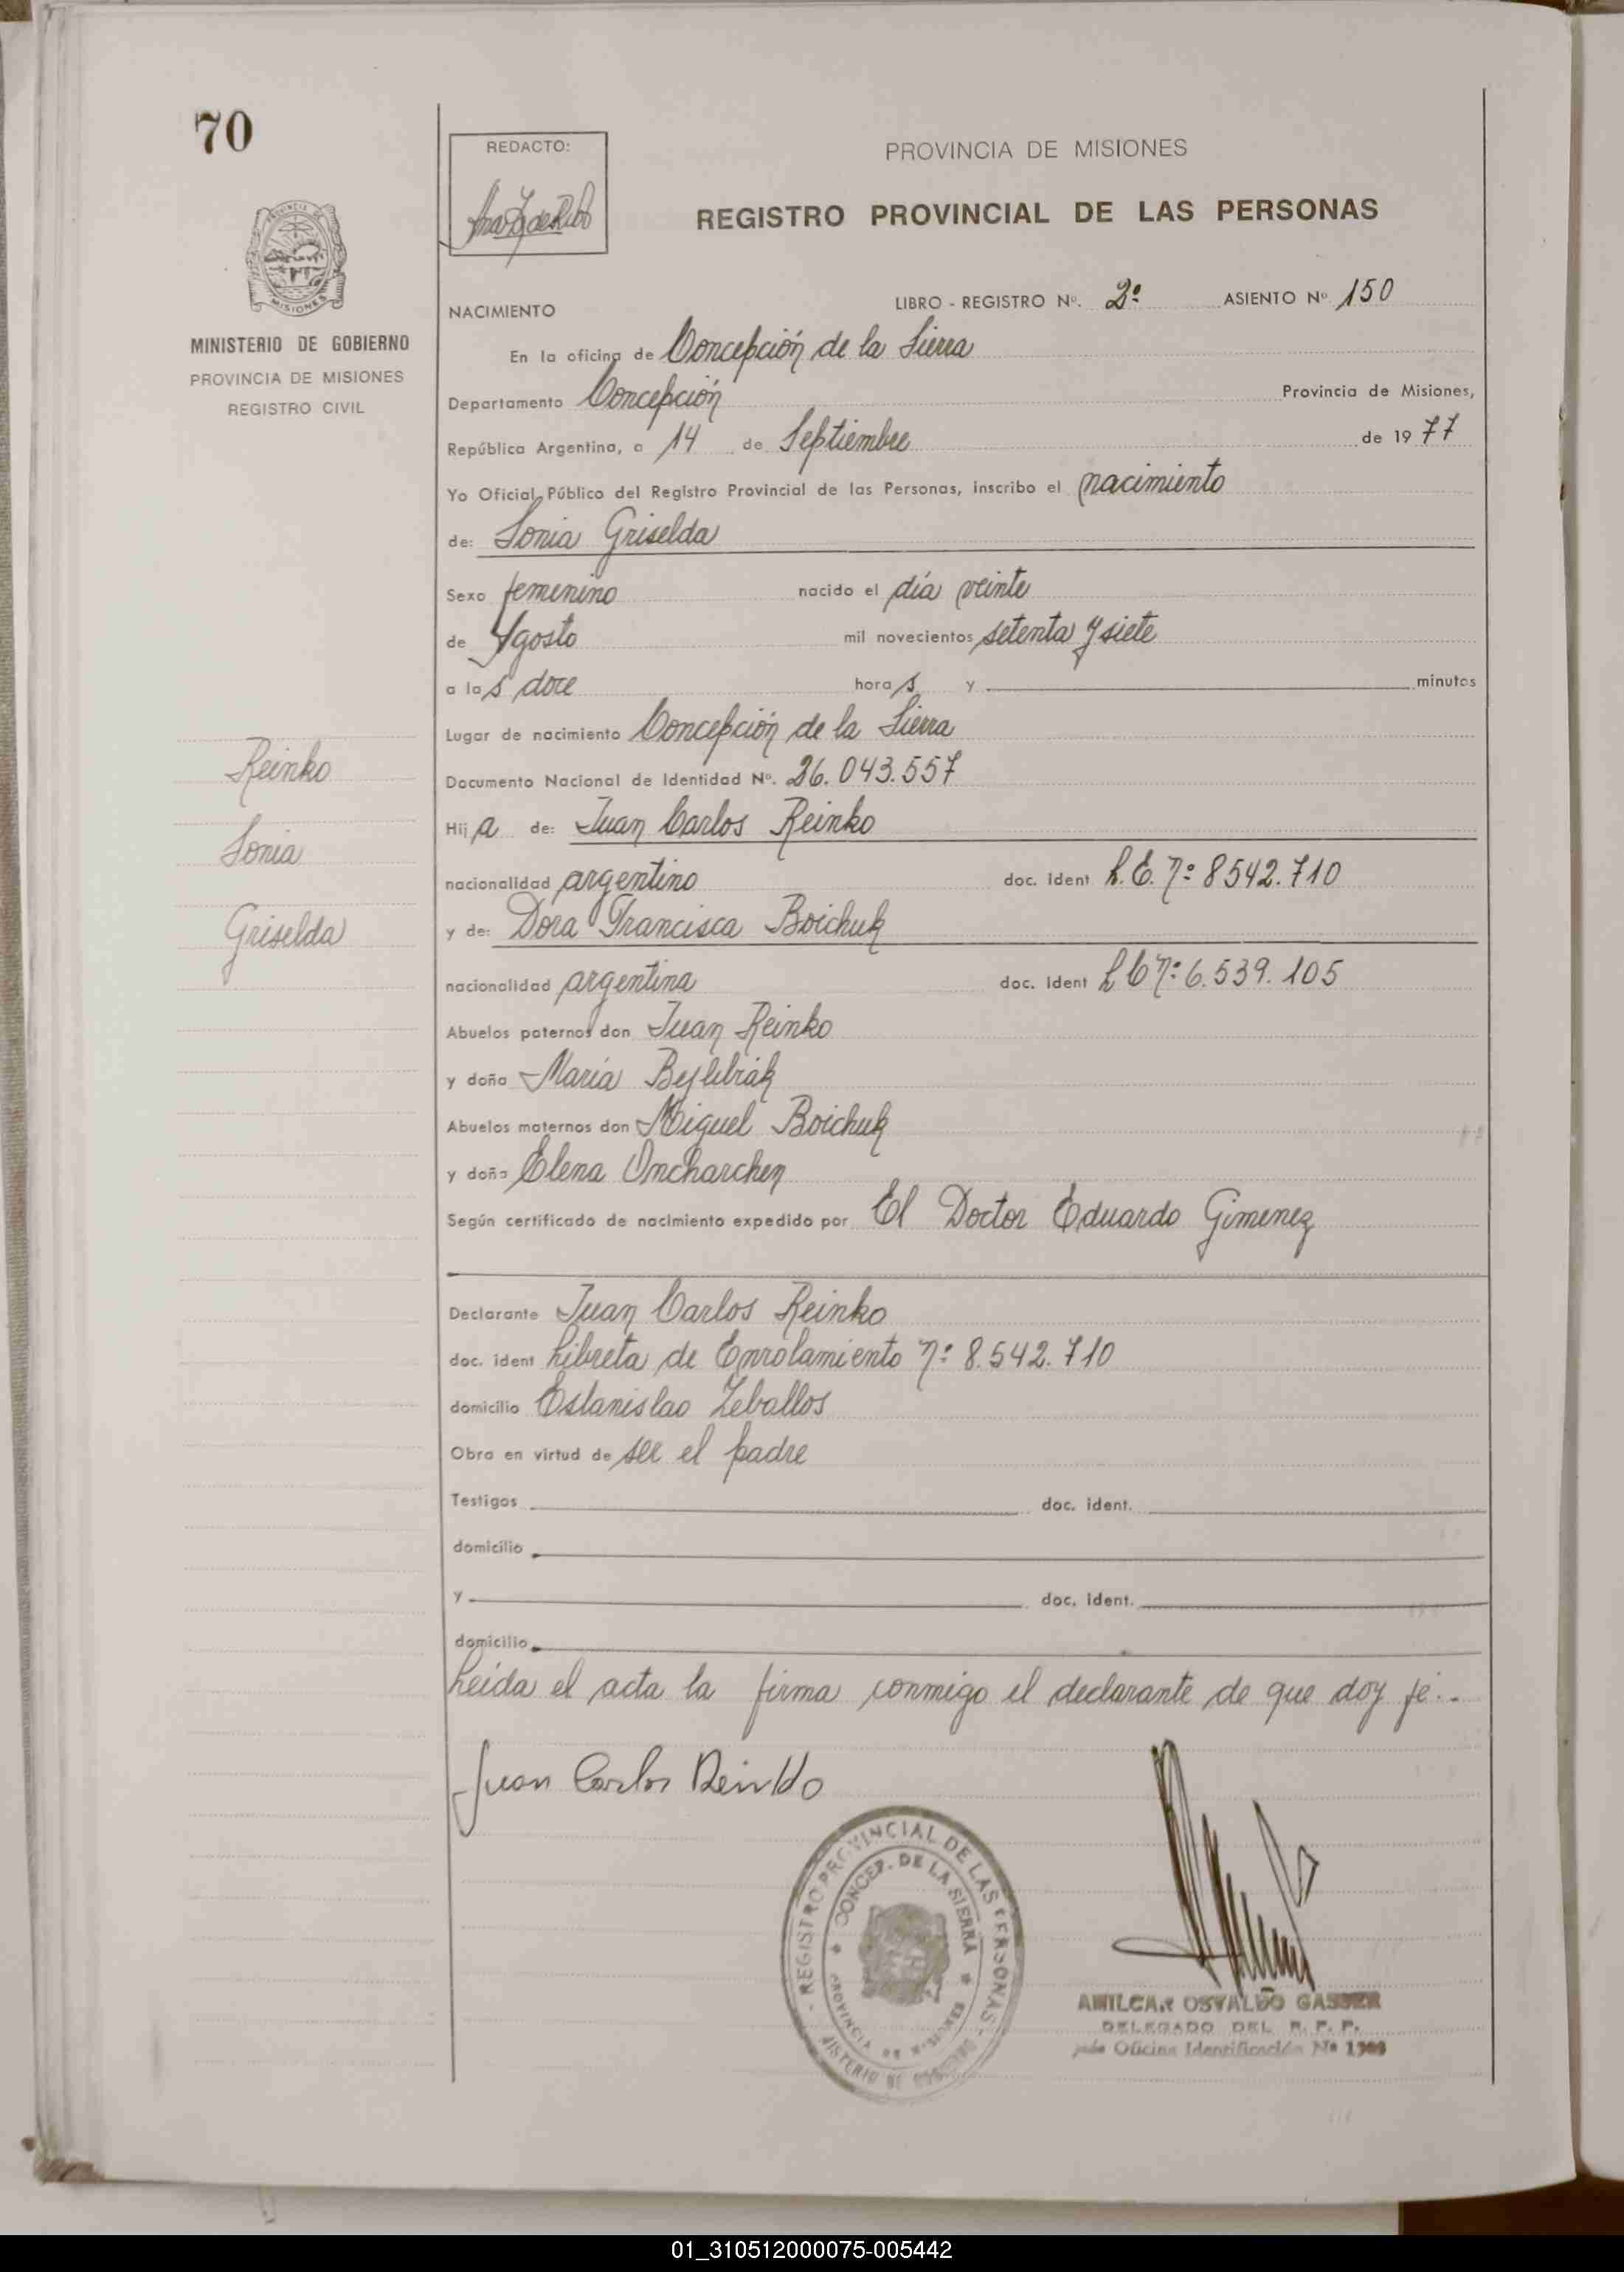 70
REDACTO:
PROVINCIA DE MISIONES
REGISTRO PROVINCIAL DE LAS PERSONAS
MISIONES
MINISTERIO DE GOBIERNO
PROVINCIA DE MISIONES
REGISTRO CIVIL
NACIMIENTO LIBRO - REGISTRO Nº. 2º ASIENTO Nº 150
En la oficina de Concepción de la Sierra
Departamento Concepción Provincia de Misiones,
República Argentina, a 14 de Septiembre de 1977
Yo Oficial Público del Registro Provincial de las Personas, inscribo el nacimiento
de: Sonia Griselda
Sexo femenino nacido el día veinte
de Agosto mil novecientos setenta y siete
a las doce horas y minutos
Lugar de nacimiento Concepción de la Sierra
Documento Nacional de Identidad Nº. 26.043.557
Hija de: Juan Carlos Reinko
nacionalidad argentino doc. ident L.E. nº 8542.710
y de: Dora Francisca Boichuk
nacionalidad argentina doc. ident L C nº 6.539.105
Abuelos paternos don Juan Reinko
y doña María
Abuelos maternos don Miguel Boichuk
y doña Elena Oncharchen
Según certificado de nacimiento expedido por El Doctor Eduardo Gimenez
Declarante Juan Carlos Reinko
doc. ident Libreta de Enrolamiento nº 8.542.710
domicilio Estanislao Zeballos
Obra en virtud de ser el padre
Testigos doc. ident.
domicilio
y doc. ident.
domicilio
Leida el acta la firma conmigo el declarante de que doy fé..
Reinko
Sonia
Griselda
Juan Carlos Reinko
REGISTRO PROVINCIAL DE LAS PERSONAS
CONCEP. DE LA SIERRA
PROVINCIA DE MISIONES
AMILCAR OSVALDO GASSER
DELEGADO DEL R. P. P.
Oficina Identificación Nº
01_310512000075-005442